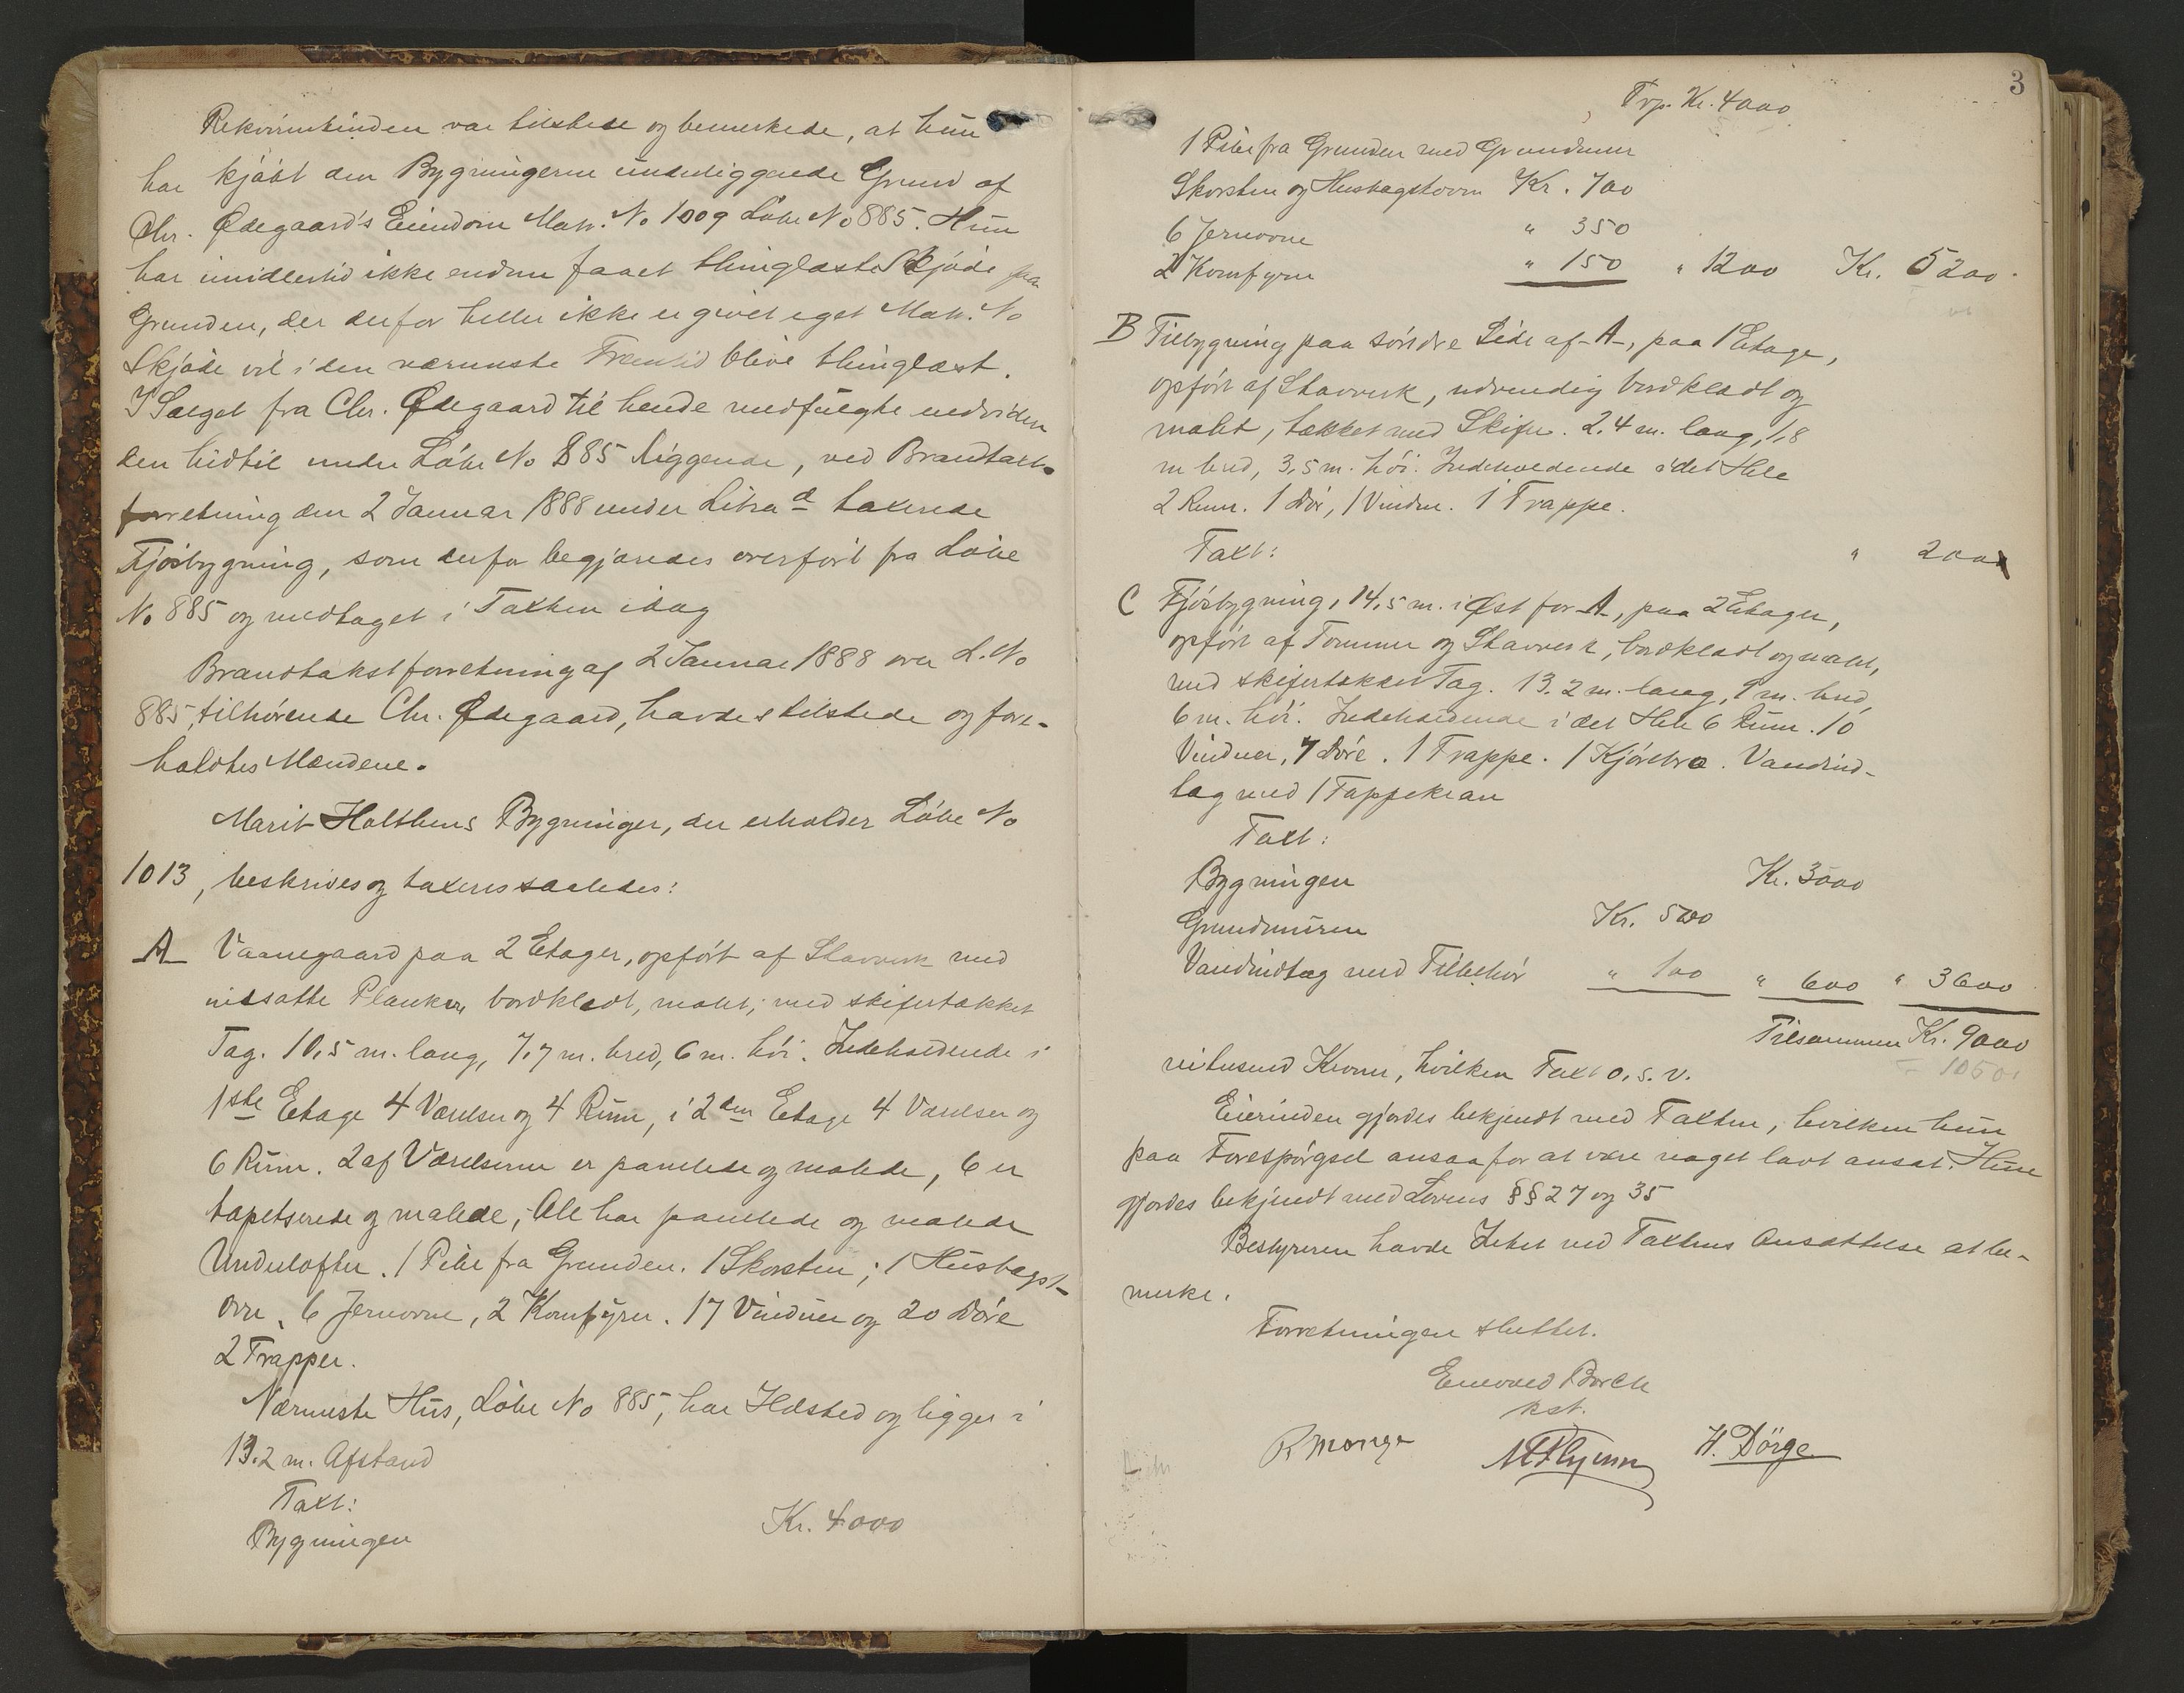 Rekvirentinden var tilstede og bemerkede, at hun
har kjøbt den Bygningerne underliggende Grund af
Chr. Ødegaard's Eiendom Matr. No 1009 Løbe No 885. Hun
har imidlertid ikke endnu faaet thinglæst Skjøde paa
Grunden, der derfor heller ikke er givet eget Matr. No
Skjøde vil i den nærmeste Fremtid blive thinglæst.
I Salget fra Chr. Ødegaard til hende medfulgte endvidere
den hidtil under Løbe No 885 liggende, ved Brandtaxt-
forretning den 2 Januar 1888 under Litra d taxerede
Fjøsbygning, som derfor begjæredes overført fra Løbe
No 885 og medtaget i Taxten idag
Brandtakstforretning af 2 Januar 1888 over L. No
885, tilhørende Chr. Ødegaard, havdes tilstede og fore-
holdtes Mændene.
Marit Holthens Bygninger, der erholder Løbe No
1013, beskrives og taxeres saaledes:
A Vaanegaard paa 2 Etager, opført af Stavverk med
nissatte Planker, bordklædt, malet; med skifertækket
Tag. 10,5 m. lang, 7,7 m. bred, 6 m. høi. Indeholdende i
1ste Etage 4 Værelser og 4 Rum, i 2den Etage 4 Værelser og
6 Rum. 2 af Værelserne er panelede og malede, 6 er
tapetserede og malede; Alle har panelede og malede
Underlofter. 1 Pibe fra Grunden. 1 Skorsten; 1 Husbagst-
ovn, 6 Jernovne, 2 Komfyrer. 17 Vinduer og 20 Døre
2 Trapper.
Nærmeste Hus, Løbe No 885, har Ildsted og ligger i
13.2 m. Afstand
Taxt:
Bygningen Kr. 4000
3
Trp. Kr. 4000
1 Pibe fra Grunden med Grundmur
Skorsten og Husbagstovn Kr. 700
6 Jernovne " 350
2 Komfyrer " 150 " 1200 Kr. 5200
B Tilbygning paa søndre Side af A, paa 1 Etage,
opført af Stavverk, udvendig bordklædt og
malet, tækket med Skifer. 2.4 m. lang, 1,8
m bred, 3,5 m. høi. Indeholdende i det Hele
2 Rum. 1 Dør, 1 Vindu. 1 Trappe.
Taxt: " 200
C Fjøsbygning, 14,5 m. i Øst for A, paa 2 Etager,
opført af Tømmer og Stavverk, bordklædt og malet,
med skifertækket Tag. 13.2 m. lang, 9 m. bred,
6 m. høi. Indeholdende i det Hele 6 Rum. 10
Vinduer, 7 Døre. 1 Trappe. 1 Kjørebro. Vandind-
læg med 1 Tappekran
Taxt:
Bygningen Kr. 3000
Grundmuren Kr. 500
Vandindlæg med Tilbehør " 100 " 600 " 3600
Tilsammen Kr. 9000
nitusend Kroner, hvilken Taxt o. s. v.
Eierinden gjordes bekjendt med Taxten, hvilken hun
paa Forespørgsel ansaa for at være noget lavt ansat. Hun
gjordes bekjendt med Lovens §§ 27 og 35
Bestyreren havde Intet ved Taxtens Ansættelse at be-
merke.
Forretningen sluttet.
Enevald Borch
kst.
R Monge M Flyum H. Dörge